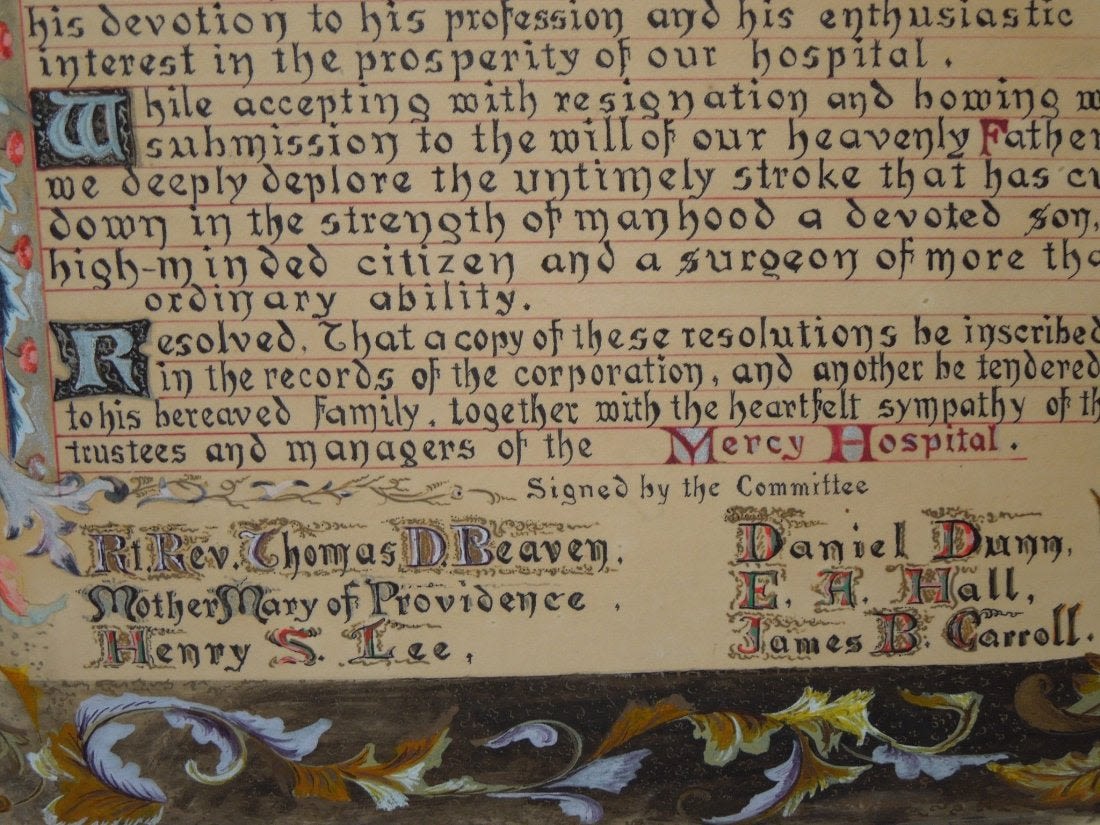 his devotion to his profession and his enthusiastic
interest in the prosperity of our hospital.
While accepting with resignation and bowing
submission to the will of our heavenly Father
we deeply deplore the untimely stroke that has
down in the strength of manhood a devoted son,
high-minded citizen and a surgeon of more
ordinary ability.
Resolved, That a copy of these resolutions be inscribed
in the records of the corporation, and another be tendered
to his bereaved family, together with the heartfelt sympathy of
trustees and managers of the Mercy Hospital.
Signed by the Committee
Rt. Rev. Thomas D. Beaven,
Mother Mary of Providence,
Henry S. Lee,
Daniel Dunn,
E. A. Hall,
James B. Carroll.